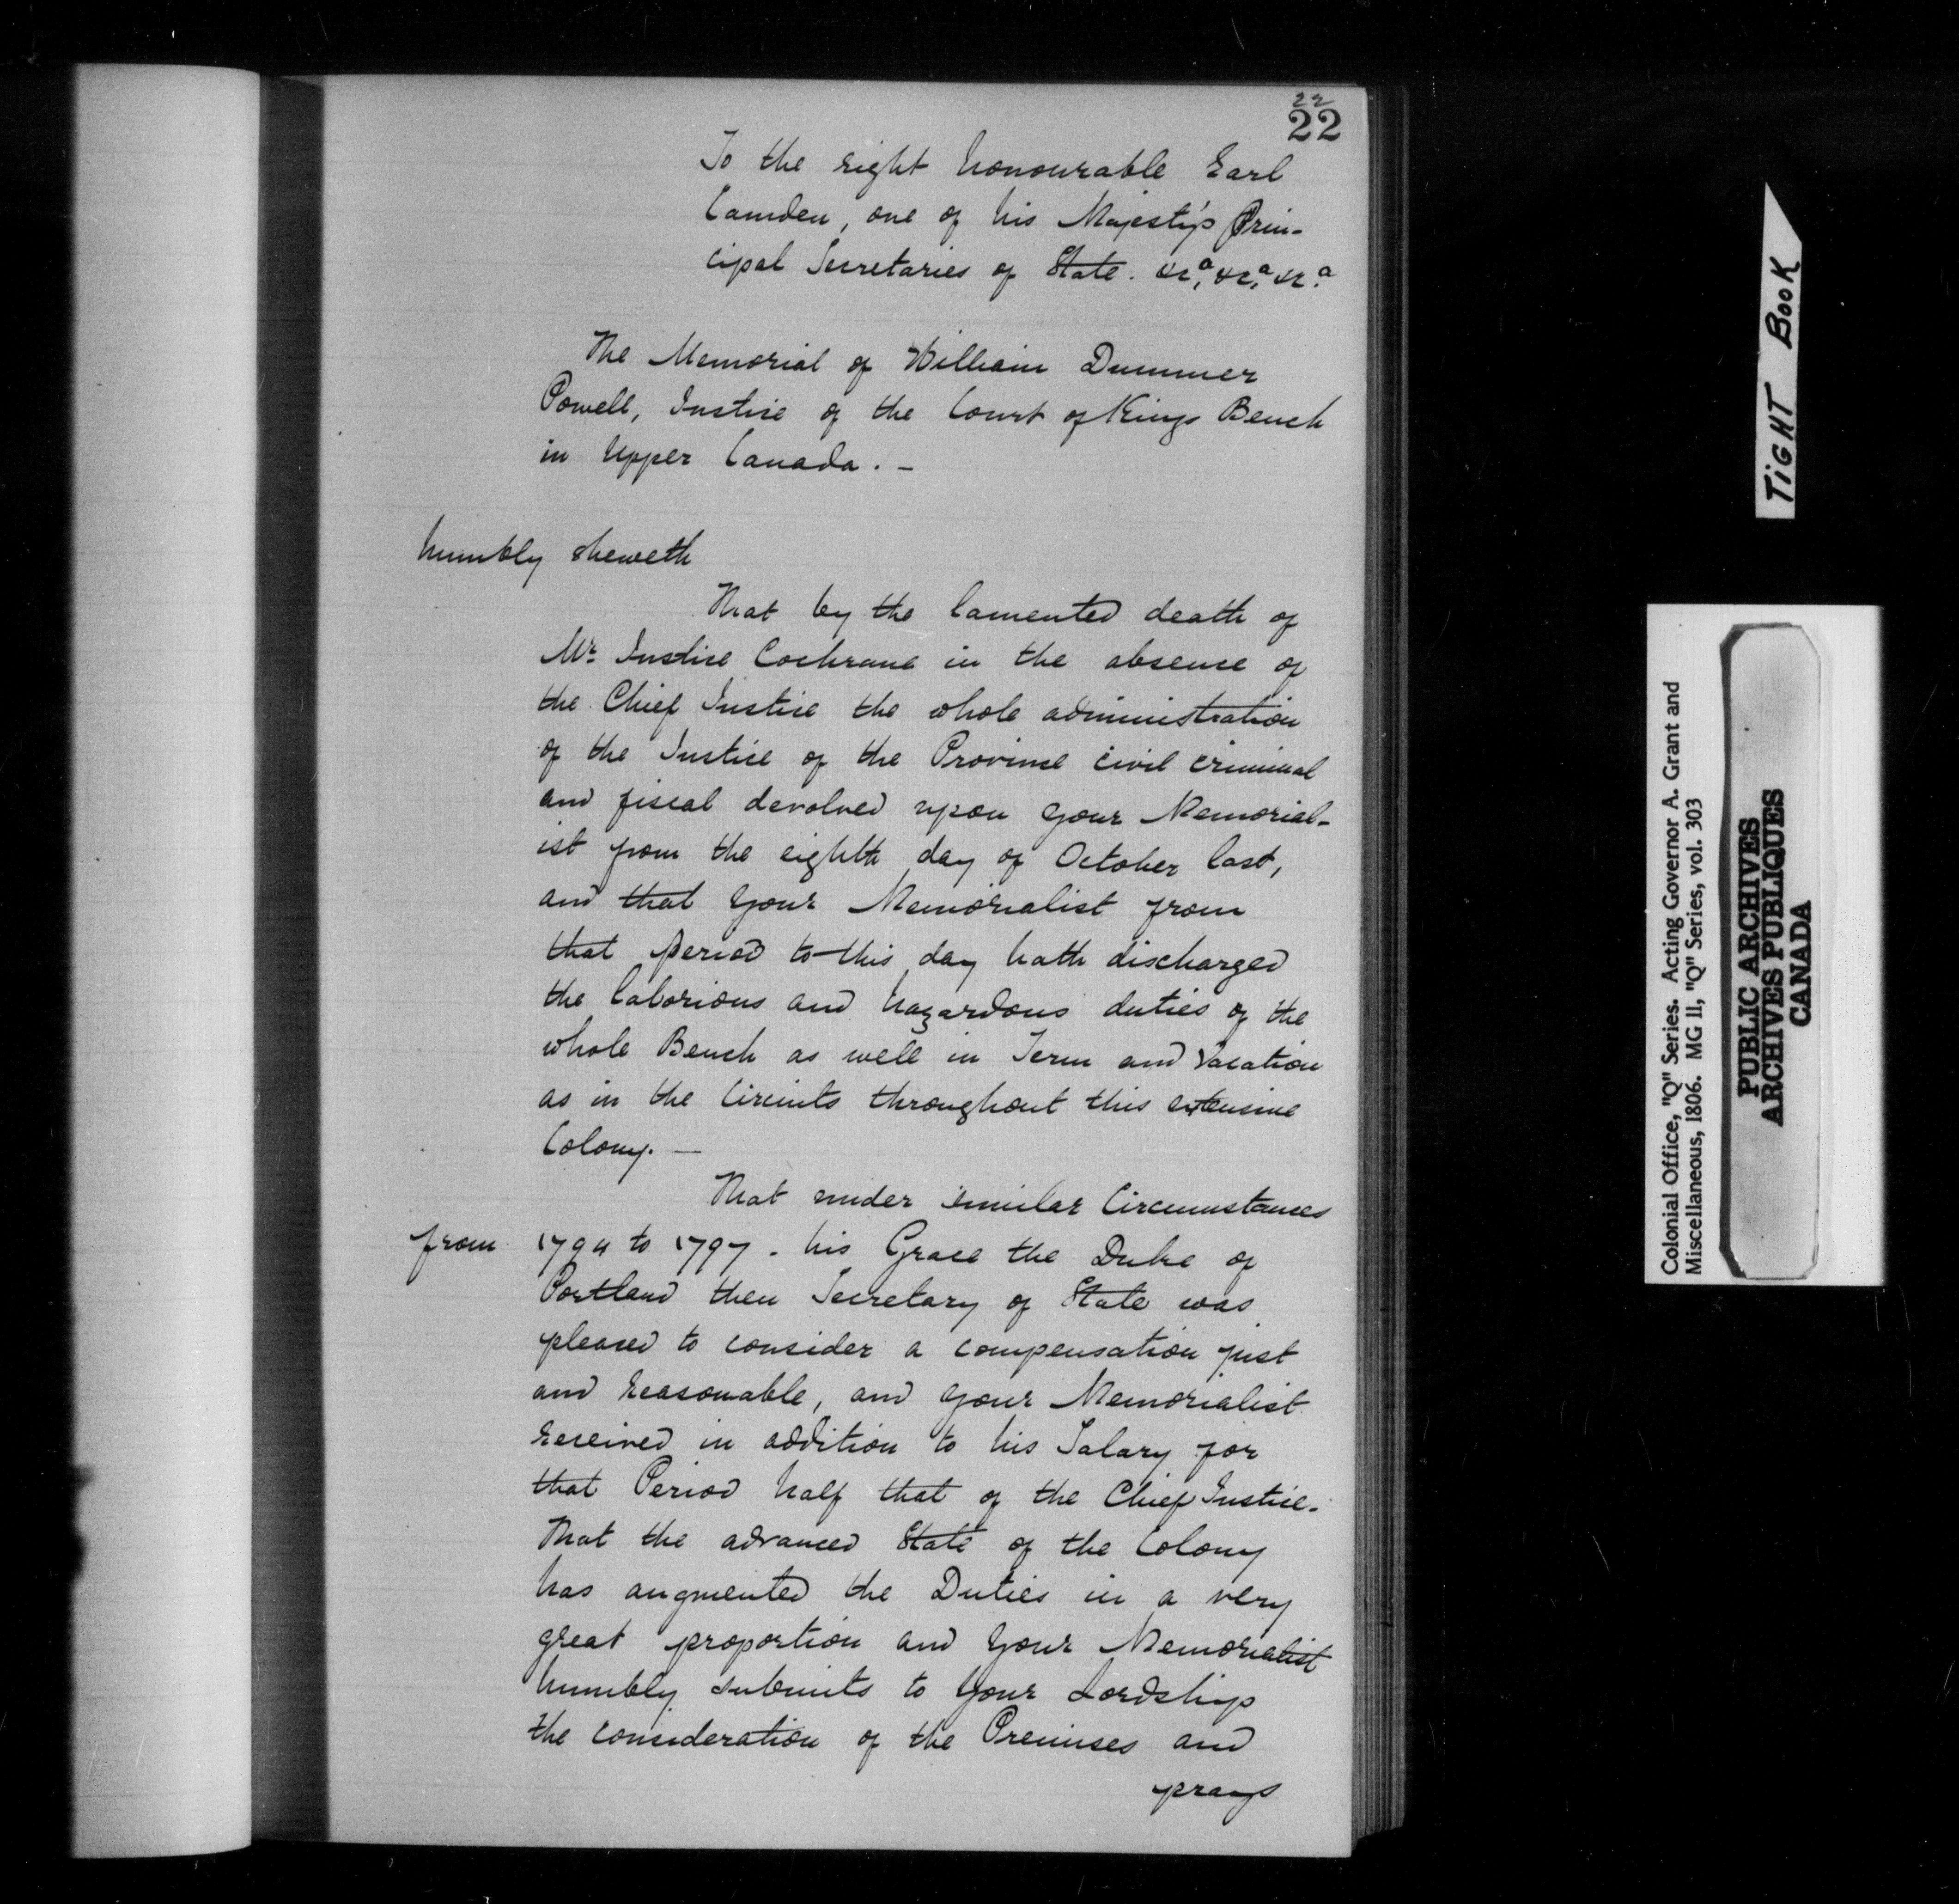 22
22
To the right honourable Earl
Camden, one of his Majesty's Prin-
cipal Secretaries of State. &c.a, &c.a, &c.a
The Memorial of William Dummer
Powell, Justice of the Court of Kings Bench
in Upper Canada. -
humbly sheweth
That by the lamented death of
Mr. Justice Cochrane in the absence of
the Chief Justice the whole administration
of the Justice of the Province civil criminal
and fiscal devolved upon your Memorial-
ist from the eighth day of October last,
and that your Memorialist from
that period to this day hath discharged
the laborious and hazardous duties of the
whole Bench as well in Term and Vacation
as in the Circuits throughout this extensive
Colony. -
That under similar Circumstances
from 1794 to 1797 - his Grace the Duke of
Portland then Secretary of State was
pleased to consider a compensation just
and reasonable, and your Memorialist
received in addition to his Salary for
that Period half that of the Chief Justice.
That the advanced State of the Colony
has augmented the Duties in a very
great proportion and your Memorialist
humbly submits to your Lordship
the consideration of the Premises and
prays
TIGHT BOOK
Colonial Office, "Q" Series. Acting Governor A. Grant and
Miscellaneous, 1806. MG 11, "Q" Series, vol. 303
PUBLIC ARCHIVES
ARCHIVES PUBLIQUES
CANADA